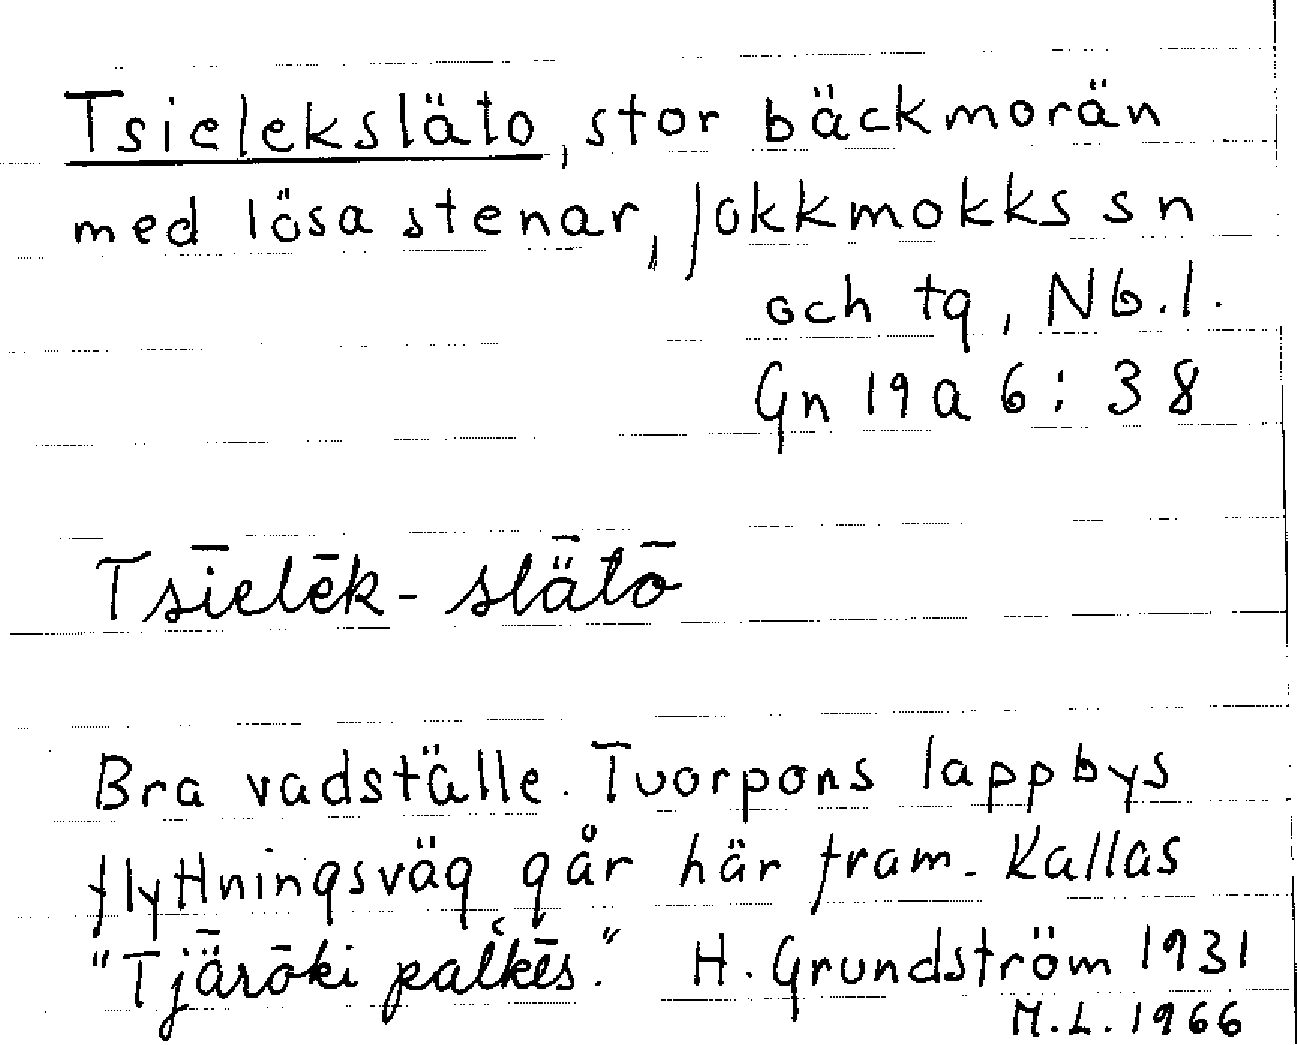 Tsieleksläto, stor bäckmorän
med lösa stenar, Jokkmokks sn
och tg, Nb.l.
Gn 19a 6:38
Tsı̄elēk-slǟtō
Bra vadställe. Tvorpons lappbys
flyttningsväg går här fram. Kallas
"Tjǟrōki palkēs." H. Grundström 1931
M.L. 1966